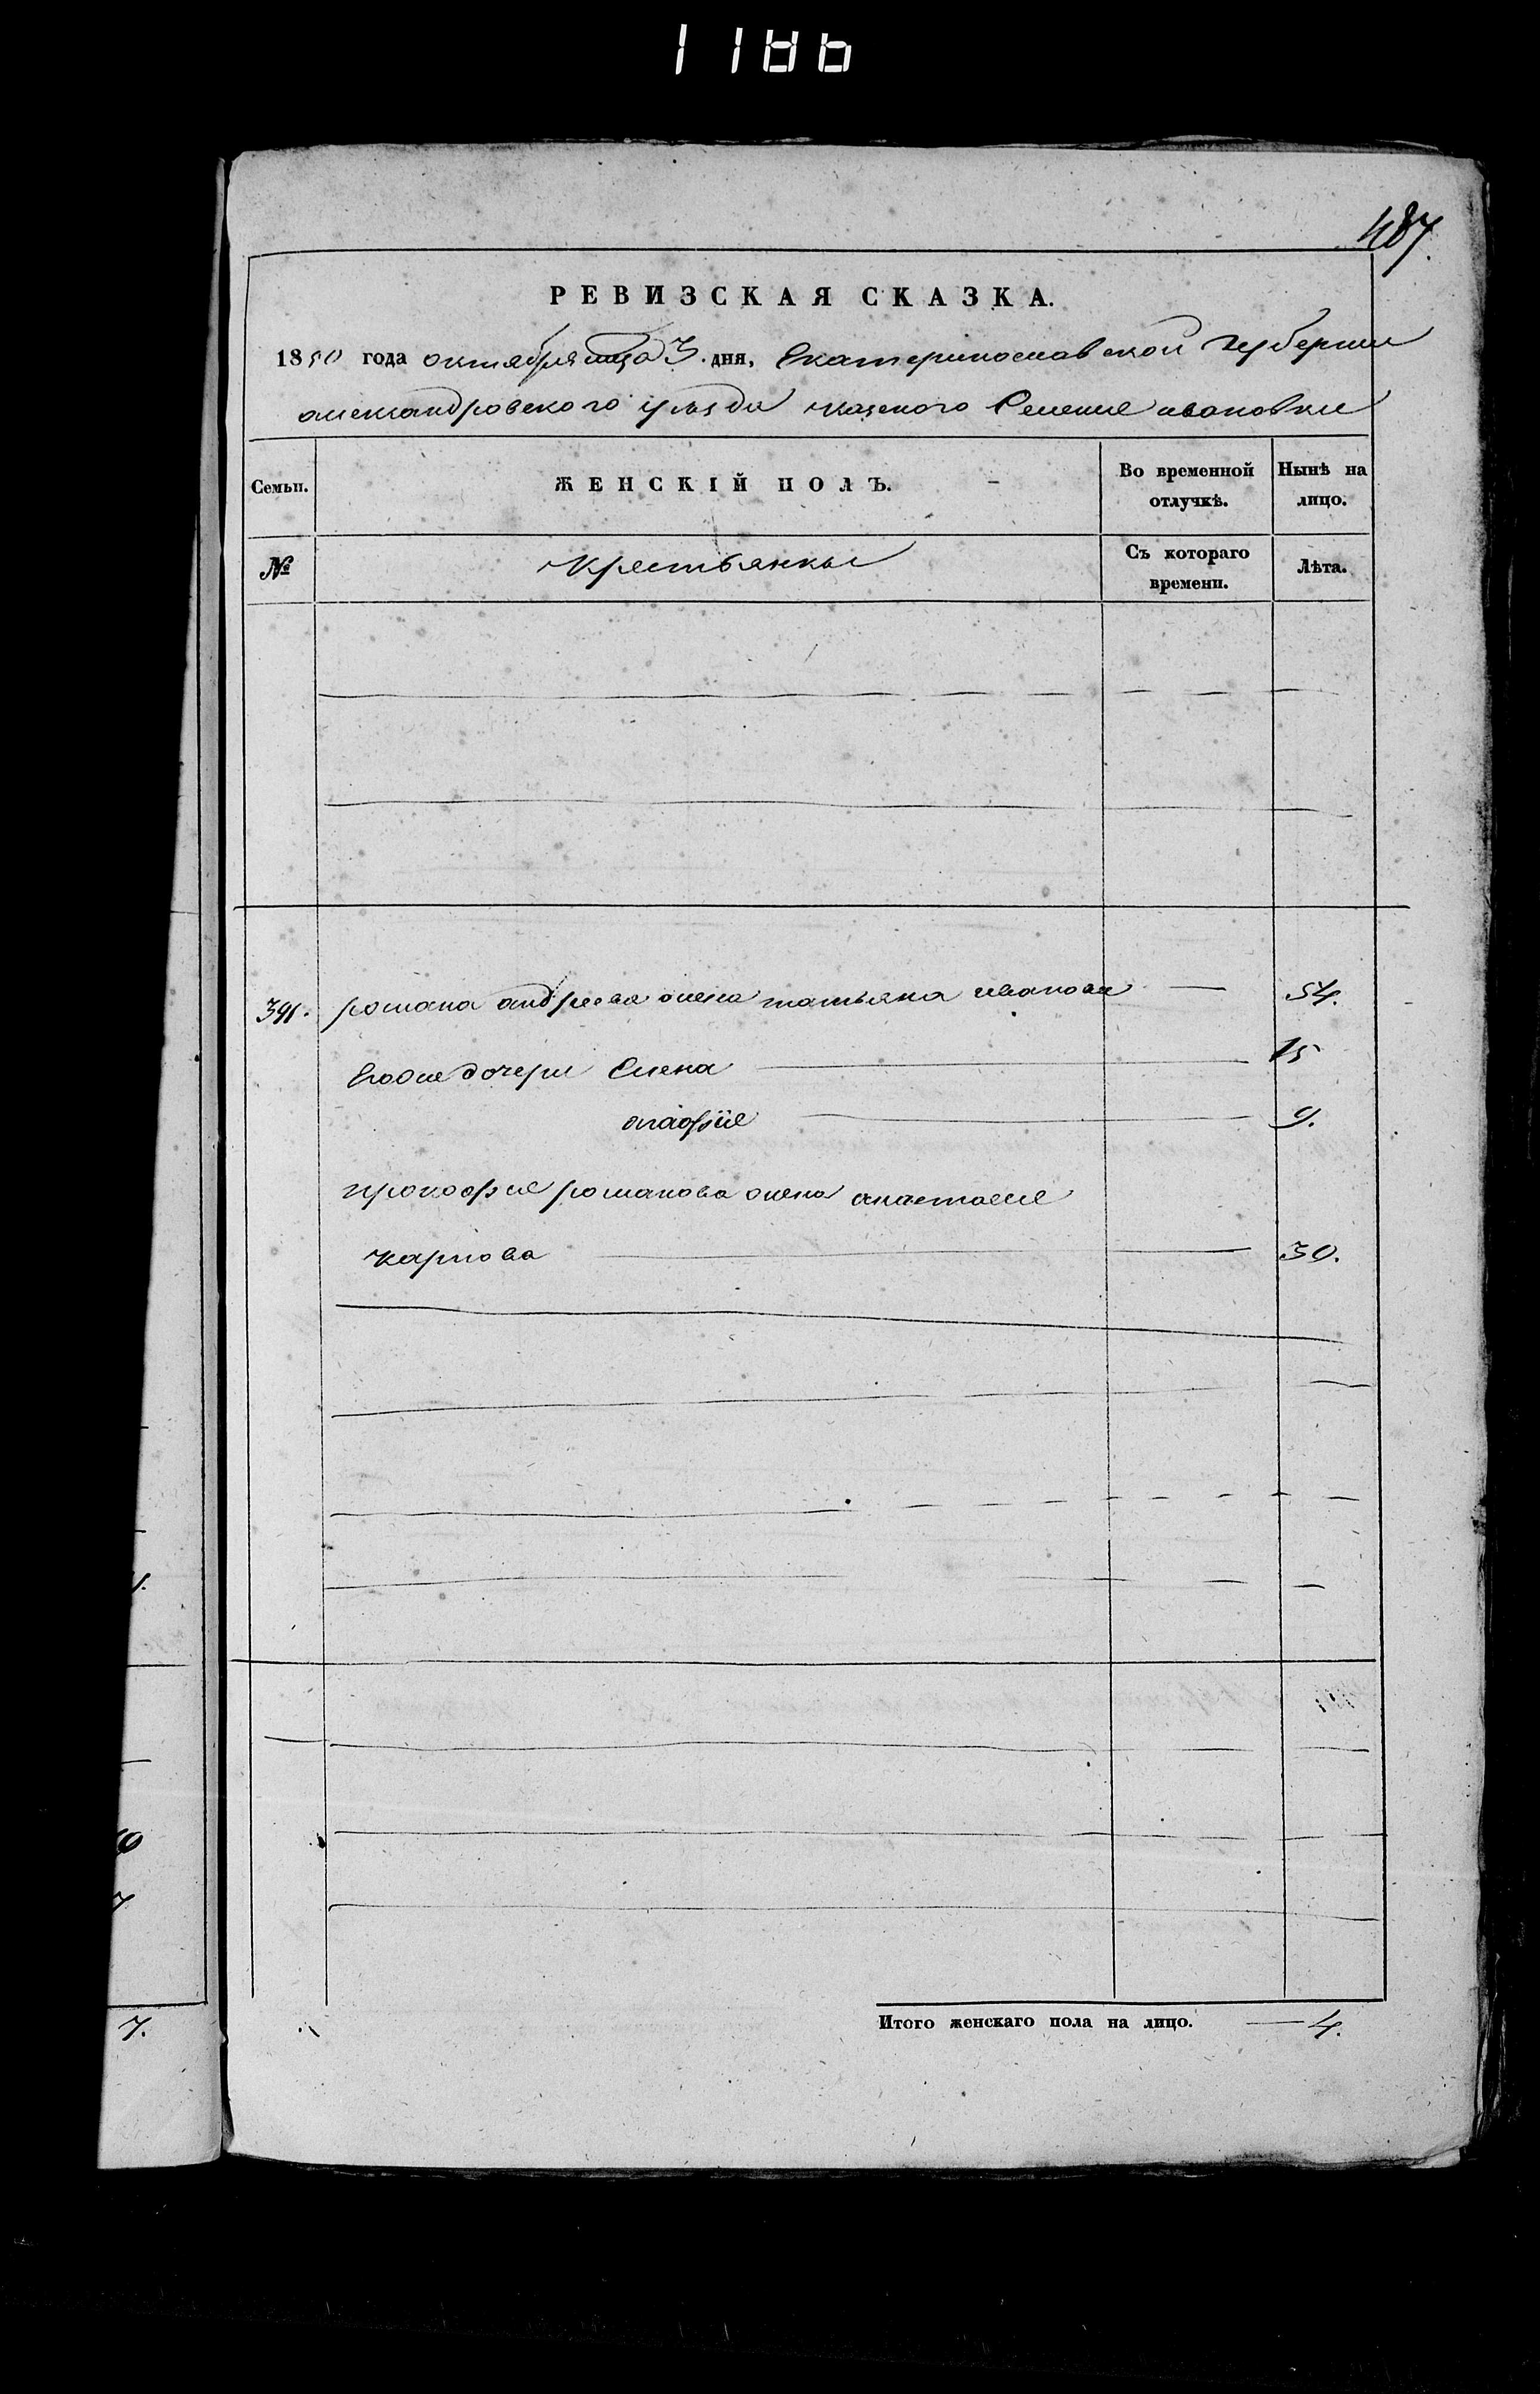 1186
487.
РЕВИЗСКАЯ СКАЗКА.
1850 года октября 3. дня, Екатеринославской Губернии
александровского уезда казеного Селение ивановки
Семьи. ЖЕНСКІЙ ПОЛЪ. Во временной отлучкѣ. Нынѣ на лицо.
№ Крестьянки Съ котораго времени. Лѣта.
391. романа андреева жена татьяна иванова 54.
Егоже дочери Елена 15
9.
прокофие романова жена анастасие
карпова 30.
Итого женскаго пола на лицо. 4.
7.